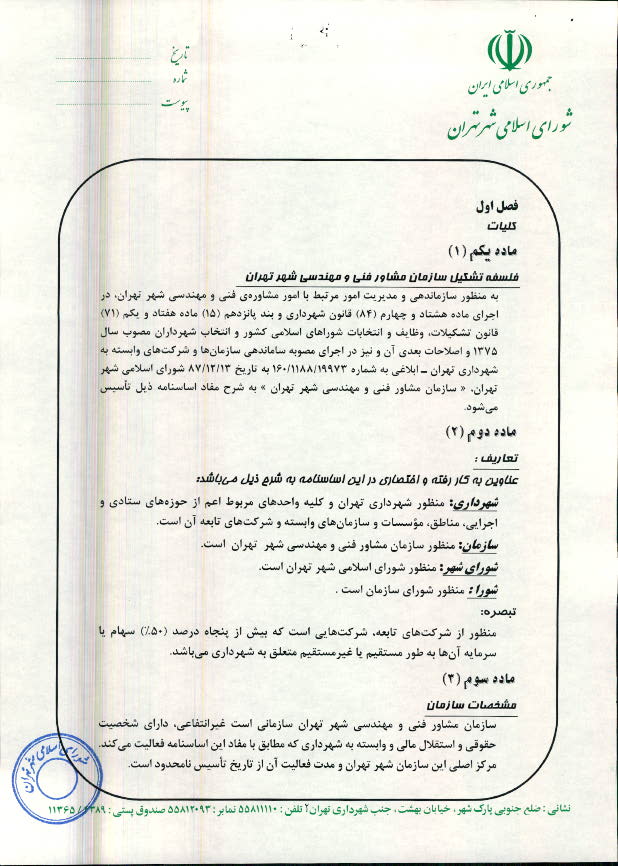 جمهوری اسلامی ایران
شورای اسلامی شهر تهران
تاریخ
شماره
پیوست
فصل اول
کلیات
ماده یکم (۱)
فلسفه تشکیل سازمان مشاور فنی و مهندسی شهر تهران
به منظور سازماندهی و مدیریت امور مرتبط با امور مشاوره‌ی فنی و مهندسی شهر تهران، در
اجرای ماده هشتاد و چهارم (۸۴) قانون شهرداری و بند پانزدهم (۱۵) ماده هفتاد و یکم (۷۱)
قانون تشکیلات، وظایف و انتخابات شوراهای اسلامی کشور و انتخاب شهرداران مصوب سال
۱۳۷۵ و اصلاحات بعدی آن و نیز در اجرای مصوبه ساماندهی سازمان‌ها و شرکت‌های وابسته به
شهرداری تهران ـ ابلاغی به شماره ۱۶۰/۱۱۸۸/۱۹۹۷۳ به تاریخ ۸۷/۱۲/۱۳ شورای اسلامی شهر
تهران، « سازمان مشاور فنی و مهندسی شهر تهران » به شرح مفاد اساسنامه ذیل تأسیس
می‌شود.
ماده دوم (۲)
تعاریف :
عناوین به کار رفته و اختصاری در این اساسنامه به شرح ذیل می‌باشد:
شهرداری: منظور شهرداری تهران و کلیه واحدهای مربوط اعم از حوزه‌های ستادی و
اجرایی، مناطق، مؤسسات و سازمان‌های وابسته و شرکت‌های تابعه آن است.
سازمان: منظور سازمان مشاور فنی و مهندسی شهر تهران است.
شورای شهر: منظور شورای اسلامی شهر تهران است.
شورا : منظور شورای سازمان است .
تبصره:
منظور از شرکت‌های تابعه، شرکت‌هایی است که بیش از پنجاه درصد (۵۰٪) سهام یا
سرمایه آن‌ها به طور مستقیم یا غیرمستقیم متعلق به شهرداری می‌باشد.
ماده سوم (۳)
مشخصات سازمان
سازمان مشاور فنی و مهندسی شهر تهران سازمانی است غیرانتفاعی، دارای شخصیت
حقوقی و استقلال مالی و وابسته به شهرداری که مطابق با مفاد این اساسنامه فعالیت می‌کند.
مرکز اصلی این سازمان شهر تهران و مدت فعالیت آن از تاریخ تأسیس نامحدود است.
شورای اسلامی شهر تهران
نشانی : ضلع جنوبی پارک شهر، خیابان بهشت، جنب شهرداری تهران تلفن : ۵۵۸۱۱۱۱۰ نمابر : ۵۵۸۱۲۰۹۳ صندوق پستی : ۴۳۸۹ / ۱۱۳۶۵